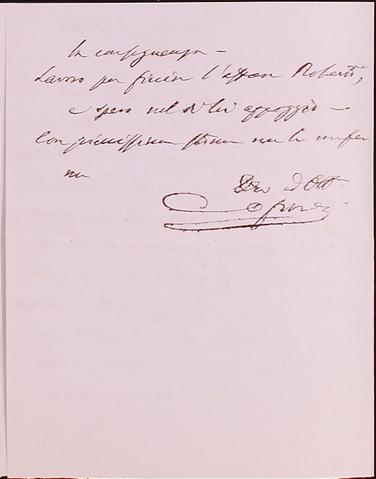 in conseguenza –
Lavoro per finire l'affare Roberti,
e spero nel di lei appoggio –
Con pienissima stima me le confer
mo